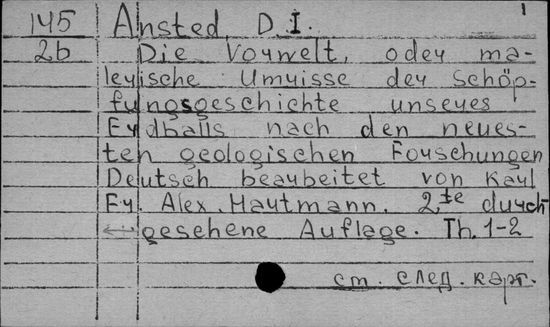 145 Ansted, D. I. 1
2b Die Vorwelt, oder ma-
lerische Umrisse der Schöp-
fungsgeschichte unseres
Erdballs nach den neues-
ten geologischen Forschungen
Deutsch bearbeitet von Karl
Fr. Alex. Hartmann. 2te durch
gesehene Auflage. Th. 1-2
см. след. карт.